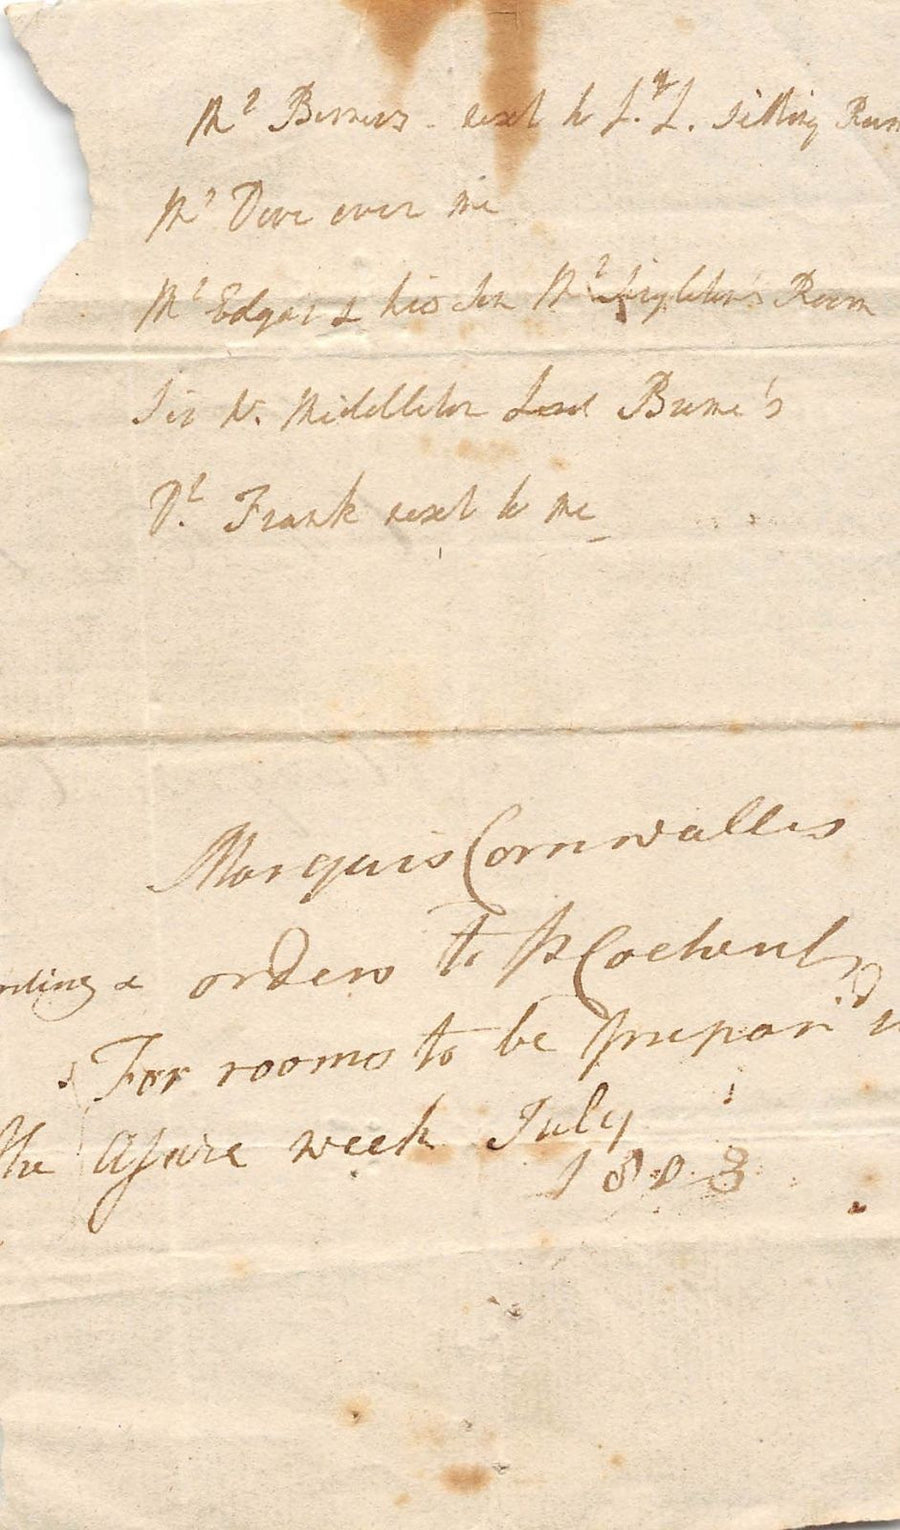 Mr Berners - next to Ly L. sitting Room
Mr Dove over me
Mr Edgar & his son Mr Singleton's Room
Sir W. Middleton Lord Brome's
Dr. Frank next to me
Marquis Cornwallis
orders to
For rooms to be prepar'd
the Assize week July
1803